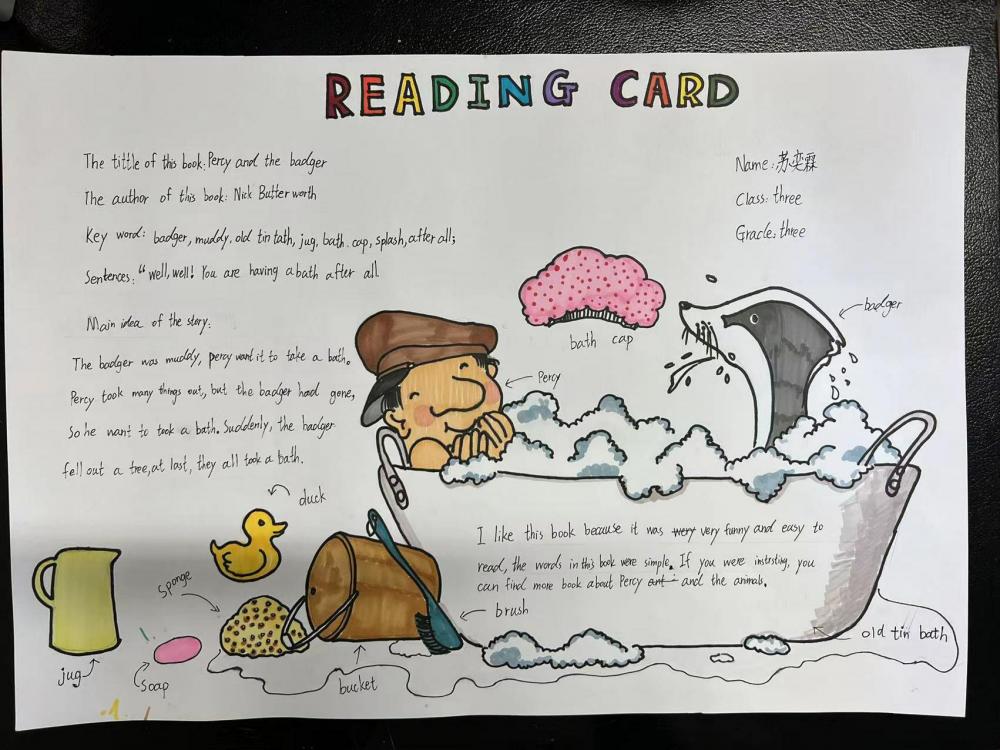 READING CARD
The tittle of this book: Percy and the badger
The author of this book: Nick Butterworth
Key word: badger, muddy, old tin tath, jug, bath cap, splash, after all;
Sentences: "well, well! You are having a bath after all.
Name: 苏奕霖
Class: three
Grade: three
Main idea of the story:
The badger was muddy, percy want it to take a bath.
Percy took many things out, but the badger had gone,
So he want to took a bath. Suddenly, the badger
fell out a tree, at last, they all took a bath.
bath cap
badger
Percy
duck
I like this book because it was very very funny and easy to
read, the words in this book were simple. If you were instrsting, you
can find more book about Percy ant and the animals.
sponge
brush
old tin bath
jug
soap
bucket